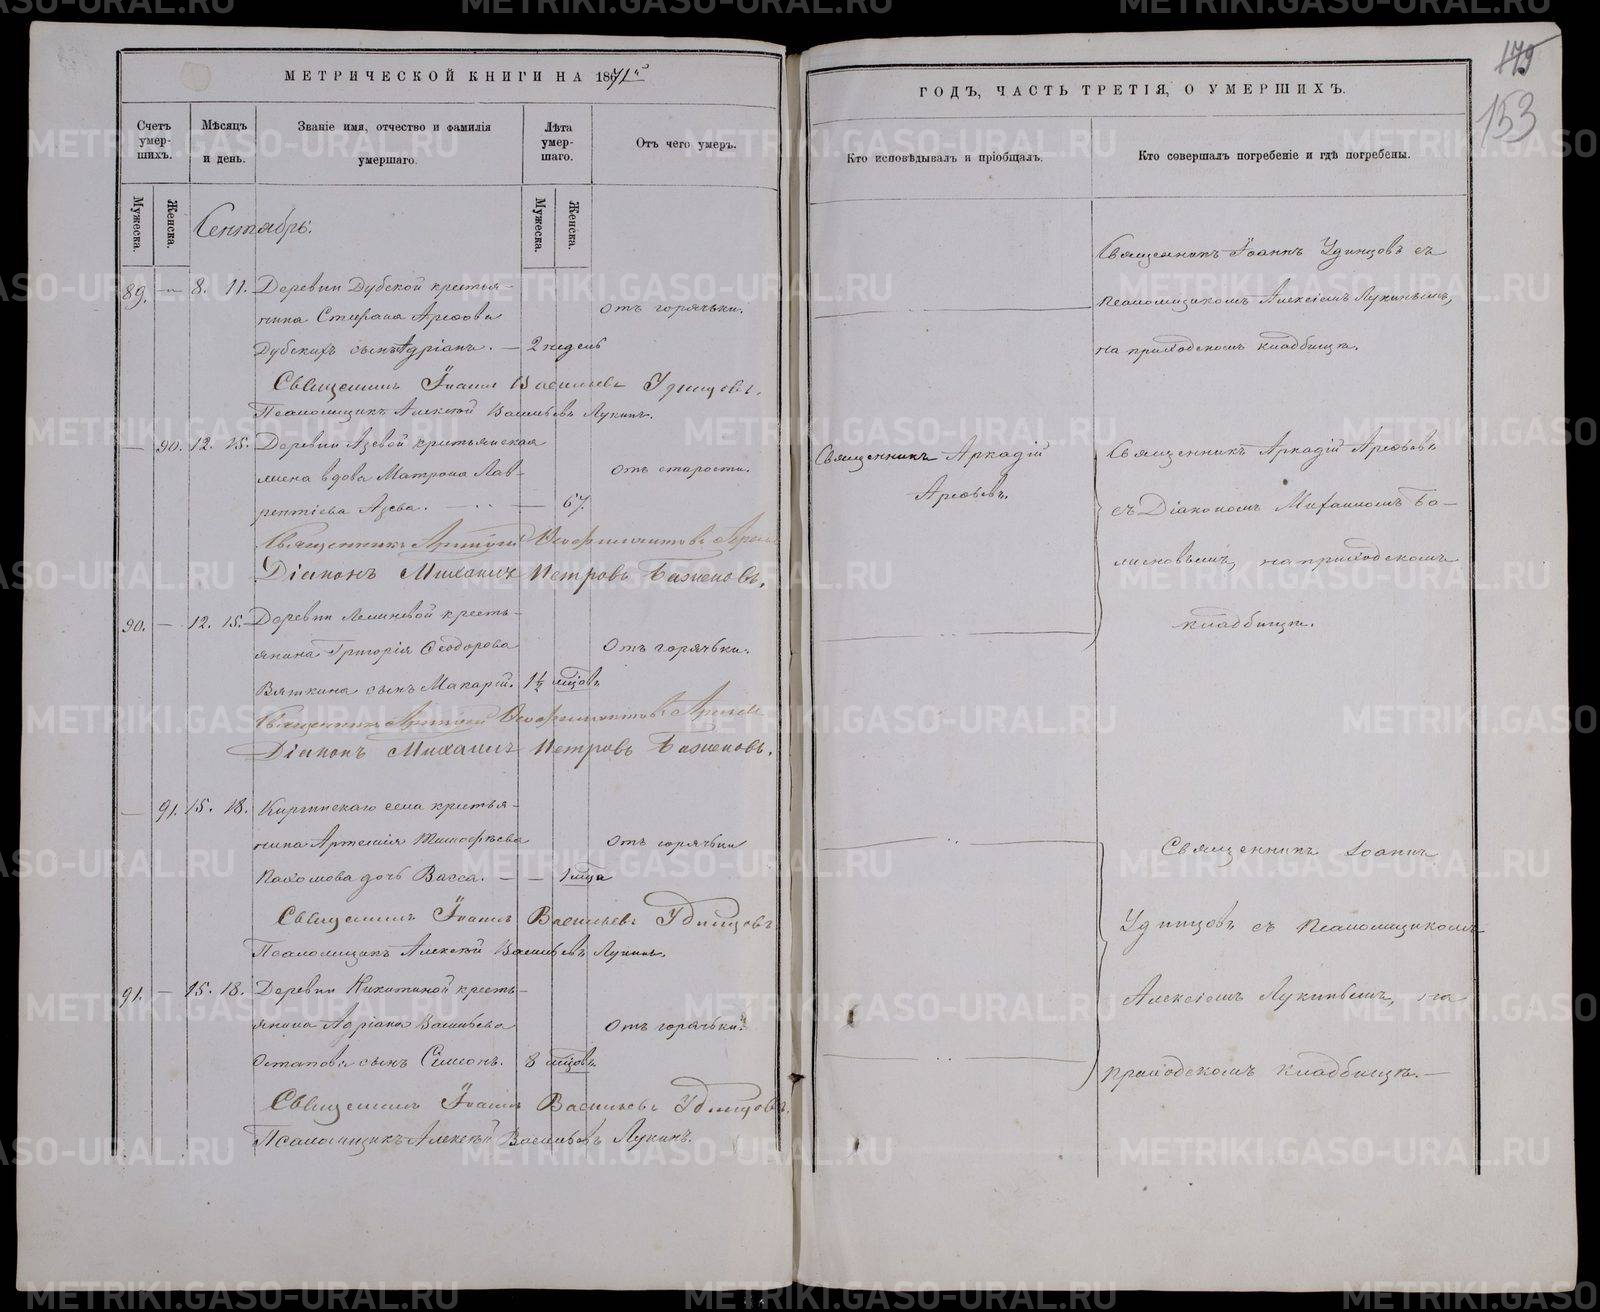 МЕТРИЧЕСКОЙ КНИГИ НА 1871й
Счетъ умер-шихъ.
Мѣсяцъ и день.
Званіе имя, отчество и фамилія умершаго.
Лѣта умер-шаго.
Отъ чего умеръ.
Мужеска.
Женска.
Мужеска.
Женска.
Сентябрь.
89. — 8. 11. Деревни Дубской крестья-
нина Стефана Арефова Отъ горячьки.
Дубскихъ сынъ Адріанъ. — 2 недель
Священникъ Іоаннъ Васильевъ Удинцовъ.
Псаломщикъ Алексѣй Васильевъ Лукинъ.
— 90. 12. 15. Деревни Азевой крестьянская
жена вдова Матрона Лав- отъ старости.
рентіева Азева. — 67.
Священникъ Аркадій Феофилактовъ
Діаконъ Михаилъ Петровъ Баженовъ.
90. — 12. 15. Деревни кресть-
янина Григорія Феодорова Отъ горячьки.
Вяткина сынъ Макарій. 1½ мѣцовъ
Священникъ Аркадій Феофилактовъ
Діаконъ Михаилъ Петровъ Баженовъ.
— 91. 15. 18. Киргинскаго села крестья-
нина Артемія Тимофѣева Отъ горячьки
Пахомова дочь Васса. — — 1 мѣца
Священникъ Іоаннъ Васильевъ Удинцовъ
Псаломщикъ Алексѣй Васильевъ Лукинъ.
91. — 15. 18. Деревни Никитиной кресть-
янина Адріана Васильева Отъ горячьки.
Остапова сынъ Сімеонъ. 8 мѣцовъ.
Священникъ Іоаннъ Васильевъ Удинцовъ.
Псаломщикъ Алексѣй Васильевъ Лукинъ.
175
153
ГОДЪ, ЧАСТЬ ТРЕТІЯ, О УМЕРШИХЪ.
Кто исповѣдывалъ и пріобщалъ.
Кто совершалъ погребеніе и гдѣ погребены.
Священникъ Іоаннъ Удинцовъ съ
псаломщикомъ Алексіемъ Лукинымъ,
на приходскомъ кладбищѣ.
Священникъ Аркадій
Арефьевъ.
Священникъ Аркадій Арефьевъ
съ Діакономъ Михаиломъ Ба-
женовымъ, на приходскомъ
кладбищѣ.
Священникъ Іоаннъ
Удинцовъ съ Псаломщикомъ
Алексіемъ Лукинымъ, на
приходскомъ кладбищѣ. —
METRIKI.GASO-URAL.RU